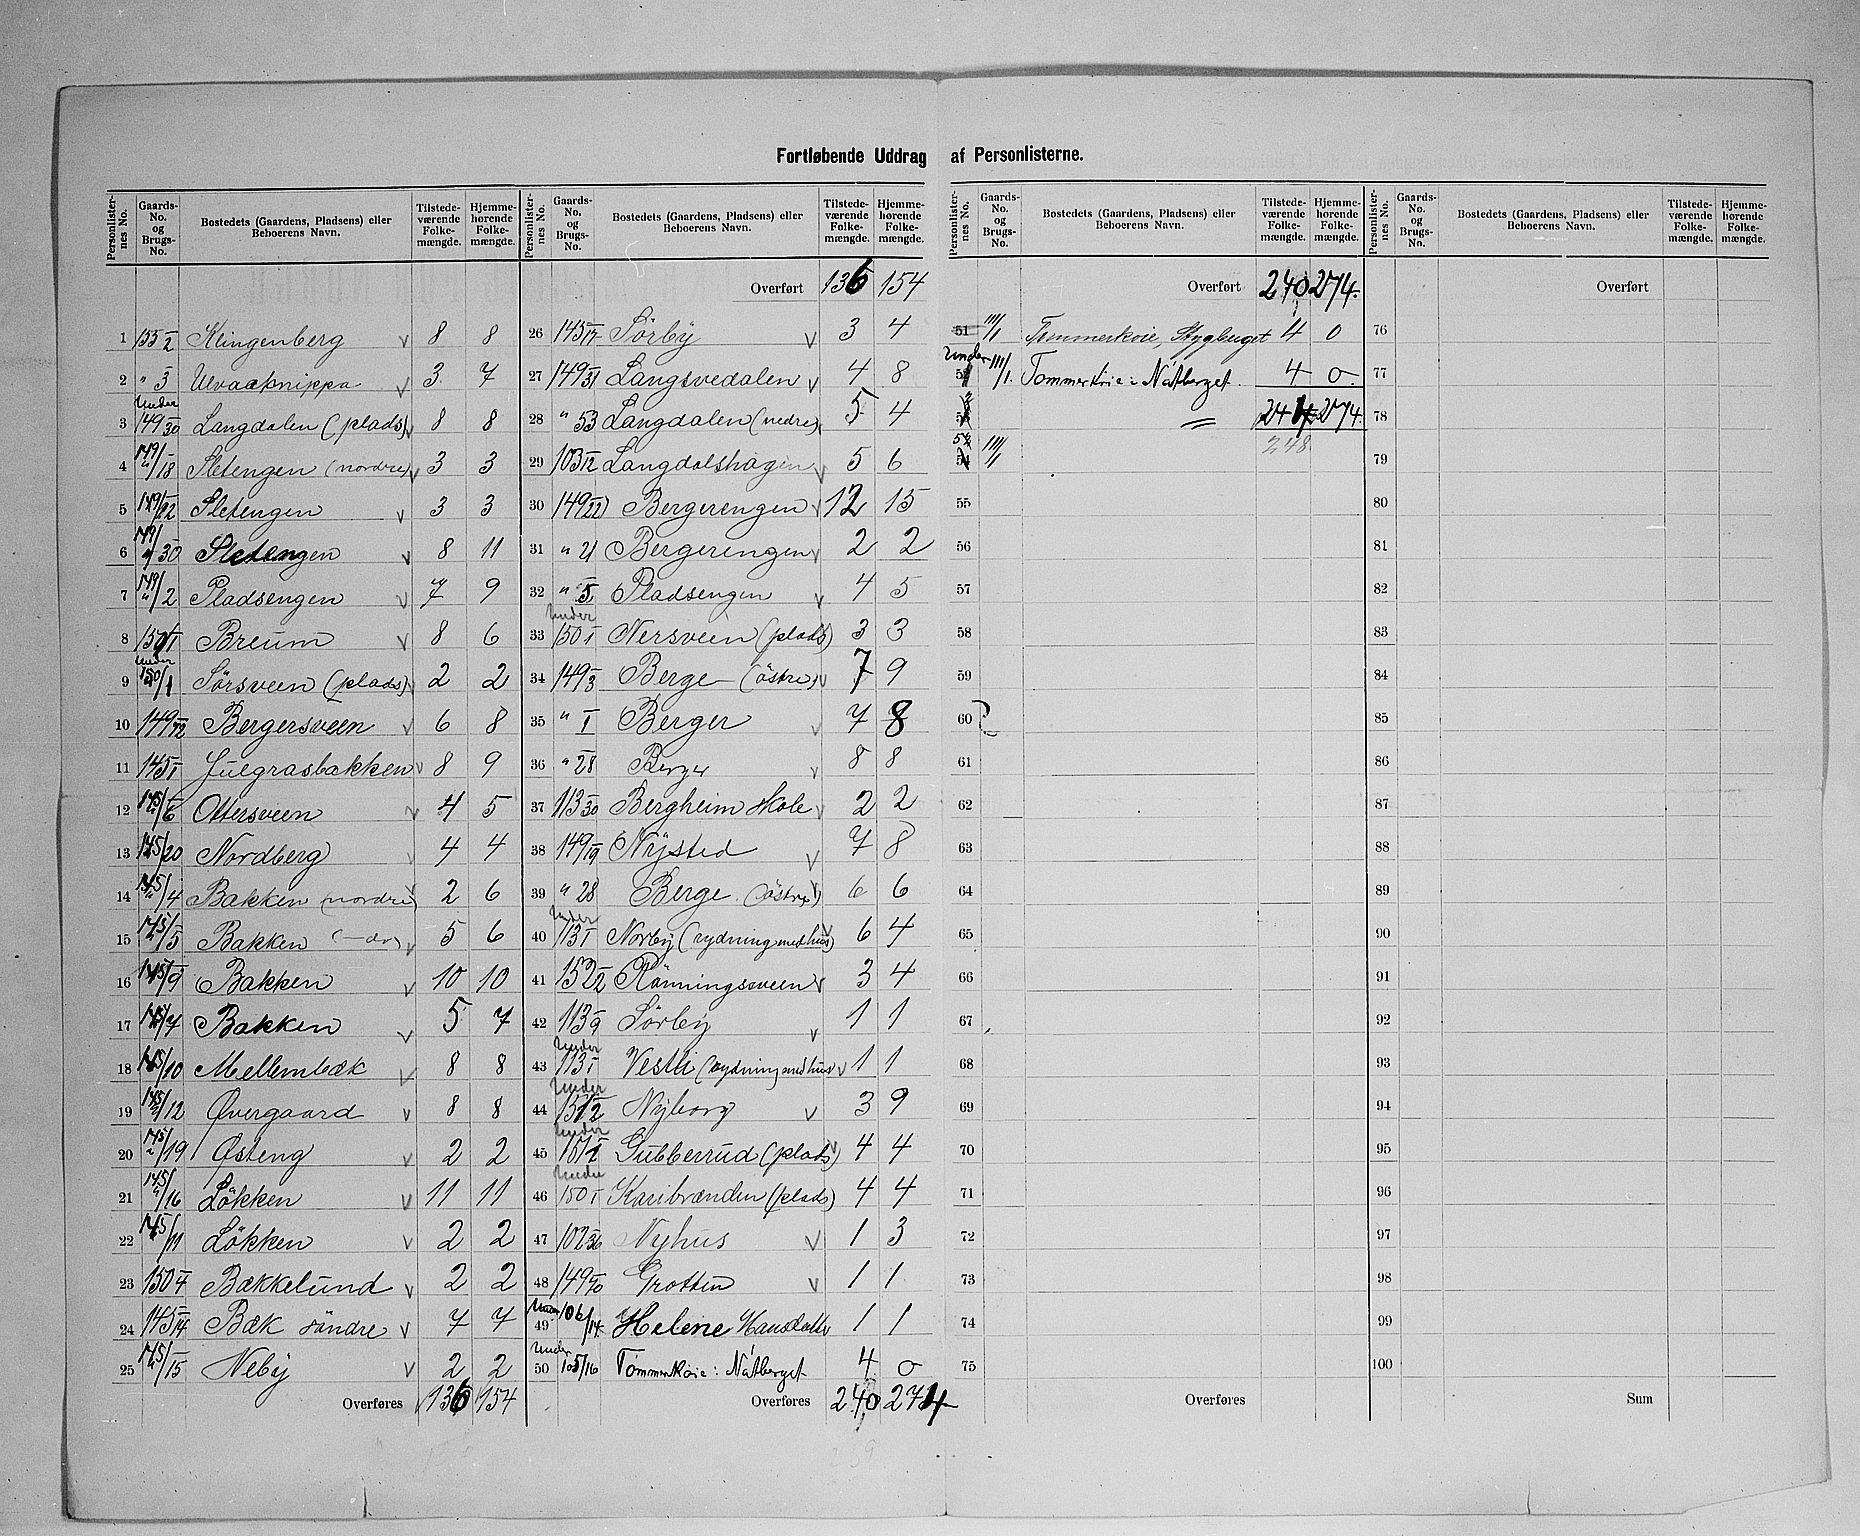 Fortløbende Uddrag af Personlisterne.
Personlister-nes No. Gaards-No. og Brugs-No. Bostedets (Gaardens, Pladsens) eller Beboerens Navn. Tilstede-værende Folke-mængde. Hjemme-hørende Folke-mængde.
1 153/2 Klingenberg v 8 8
2 " 3 Ulvaaknippa v 3 7
3 Under 149/30 Langdalen (plads) v 8 8
4 149/18 Sletengen (nordre) v 3 3
5 149/22 Sletengen v 3 3
6 149/30 Sletengen v 8 11
7 149/2 Pladsengen v 7 9
8 150/1 Breum v 8 6
9 Under 150/1 Sørsveen (plads) v 2 2
10 149/12 Bergersveen v 6 8
11 145/1 Julgrasbakken v 8 9
12 145/6 Ottersveen v 4 5
13 145/20 Nordberg v 4 4
14 145/4 Bakken (nordre) v 2 6
15 145/5 Bakken (—dr) v 5 6
16 145/9 Bakken v 10 10
17 145/7 Bakken v 5 7
18 145/10 Mellembæk v 8 8
19 145/12 Øvergaard v 8 8
20 145/19 Østeng v 2 2
21 145/16 Løkken v 11 11
22 145/11 Løkken v 2 2
23 150/4 Bækkelund v 2 2
24 145/14 Bæk søndre v 7 7
25 145/15 Neby v 2 2
Overføres 136 154
Personlister-nes No. Gaards-No. og Brugs-No. Bostedets (Gaardens, Pladsens) eller Beboerens Navn. Tilstede-værende Folke-mængde. Hjemme-hørende Folke-mængde.
Overført 136 154
26 145/17 Sörby v 3 4
27 149/31 Langsvedalen v 4 8
28 " 53 Langdalen (nedre) v 5 4
29 103/12 Langdalshagen v 5 6
30 149/22 Bergerengen v 12 15
31 " 21 Bergerengen v 2 2
32 " 5 Pladsengen v 4 5
33 Under 150/1 Nersveen (plads) 3 3
34 149/3 Berge (östre) v 7 9
35 " 1 Berger v 7 8
36 " 28 Berger v 8 8
37 113/30 Bergheim Skole v 2 2
38 149/19 Nysted v 7 8
39 " 28 Berge (östre) 6 6
40 Under 113/1 Norby (rydning med hus) 6 4
41 152/2 Rönningssveen v 3 4
42 113/9 Sörby v 1 1
43 Under 113/1 Vestli (rydning med hus v 1 1
44 Under 151/2 Nyborg v 3 9
45 Under 151/1 Gubberud (plads) 4 4
46 Under 150/1 Karibrænden (plads) 4 4
47 102/36 Nyhus v 1 3
48 149/40 Grotten v 1 1
49 Under 106/14 Helene Hansdatter 1 1
50 Under 105/16 Tømmerkoie i Nátberget 4 0
Overføres 240 274
239
Personlister-nes No. Gaards-No. og Brugs-No. Bostedets (Gaardens, Pladsens) eller Beboerens Navn. Tilstede-værende Folke-mængde. Hjemme-hørende Folke-mængde.
Overført 240 274.
51 111/1 Tømmerkoie, Stygberget 4 0
52 Under 111/1. Tømmerkoie i Nátberget. 4 0.
53 = 244 274.
54 111/1 248
55
56
57
58
59
60
61
62
63
64
65
66
67
68
69
70
71
72
73
74
75
Overføres
Personlister-nes No. Gaards-No. og Brugs-No. Bostedets (Gaardens, Pladsens) eller Beboerens Navn. Tilstede-værende Folke-mængde. Hjemme-hørende Folke-mængde.
Overført
76
77
78
79
80
81
82
83
84
85
86
87
88
89
90
91
92
93
94
95
96
97
98
99
100
Sum